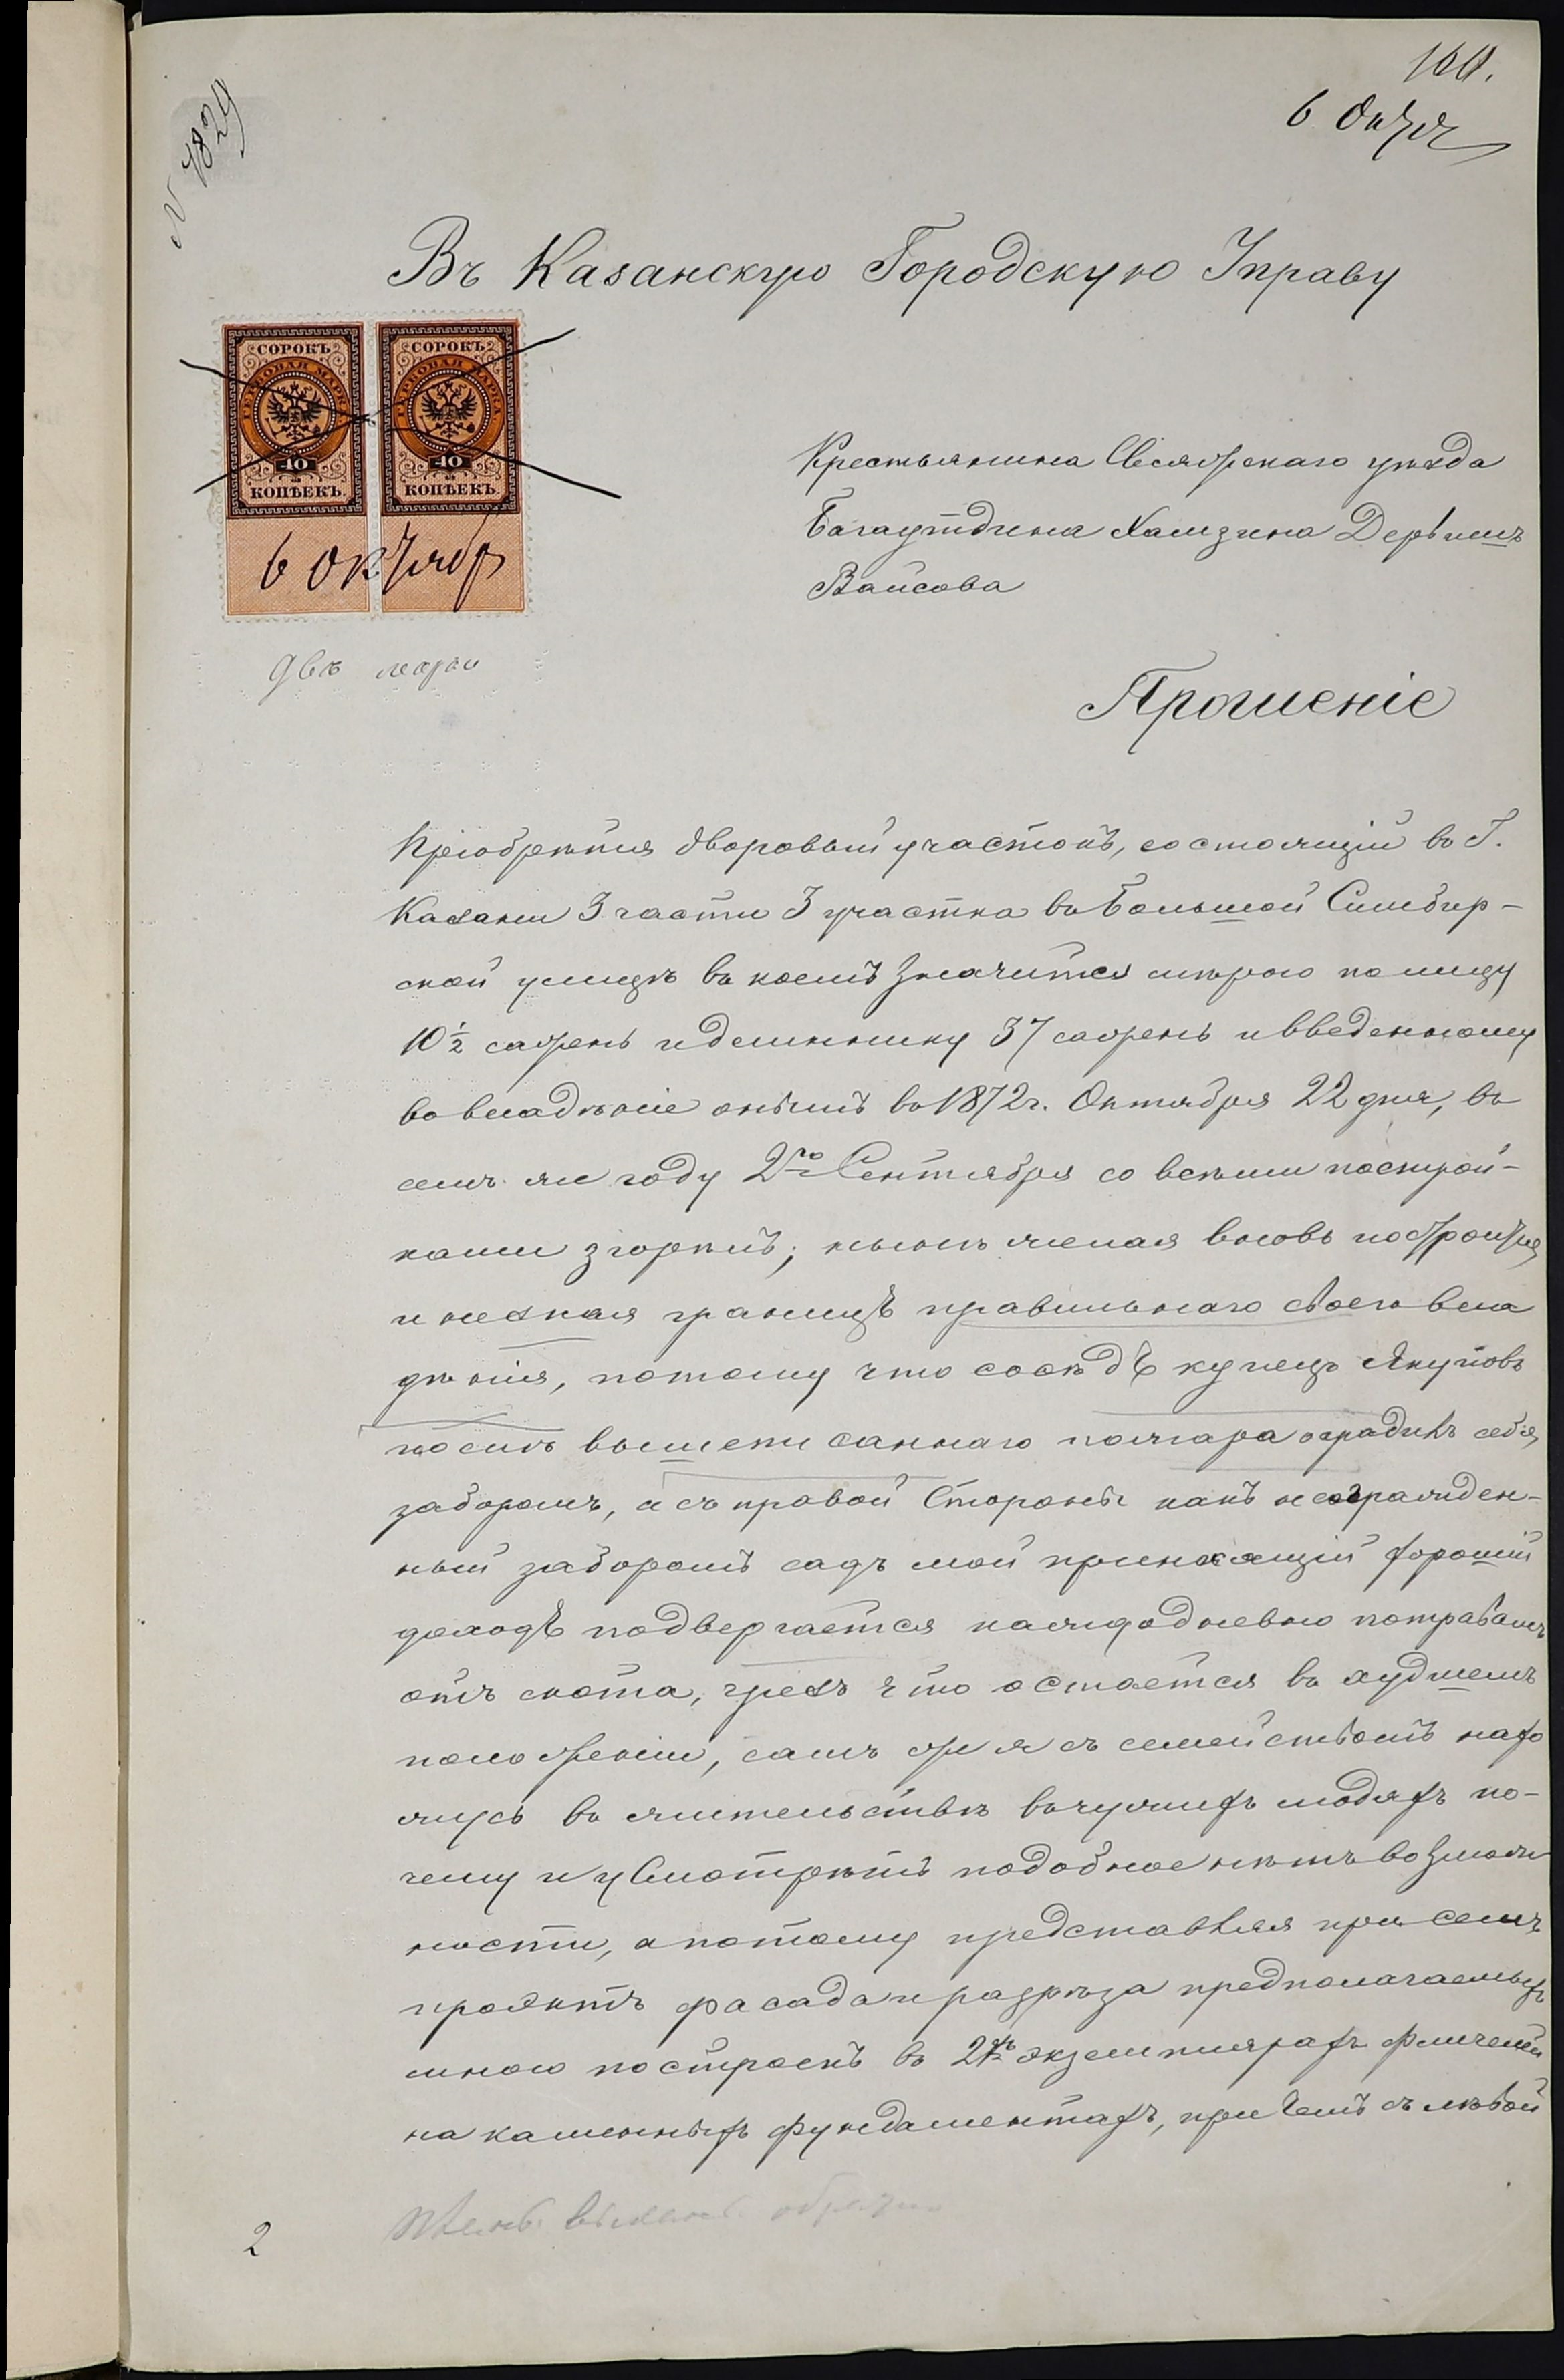 160.
6 Октя
N 7829
Въ Казанскую Городскую Управу
СОРОКЪ СОРОКЪ
ГЕРБОВАЯ МАРКА ГЕРБОВАЯ МАРКА
40 40
КОПѢЕКЪ КОПѢЕКЪ
6 Октябр
Двѣ марки
Крестьянина Свіяжскаго уѣзда
Багаутдина Хамзина Дервишъ
Ваисова
Прошеніе
Пріобрѣтя дворовый участокъ, состоящій въ Г.
Казани 3 части 3 участка въ Большой Симбир-
ской улицѣ въ коемъ значится мѣрою по лицу
10½ сажень и длиннику 37 сажень и введенному
во владѣніе онымъ въ 1872 г. Октября 22 дня, въ
семъ же году 2го Сентября со всѣми построй-
ками згорѣлъ; нынѣ желая вновь построится
и не зная границъ правильнаго своего вла
дѣнія, потому что сосѣдъ купецъ Якуповъ
послѣ вышеписаннаго пожара оградилъ себя
заборомъ, а съ правой Стороны какъ неогражден-
ный заборомъ садъ мой приносящій хорошій
доходъ подвергается каждодневно потравамъ
отъ скота, чрезъ что остается въ худшемъ
положеніи, самъ же я съ семействомъ нахо
жусь въ жительствѣ въ чужихъ людяхъ по-
чему и усмотрѣть подобное нѣтъ возмож
ности, а потому представляя при семъ
проэктъ фасада и разрѣза предполагаемыхъ
мною построекъ въ 2хъ экземплярахъ флигелей
на каменныхъ фундаментахъ, при чемъ съ лѣвой
2